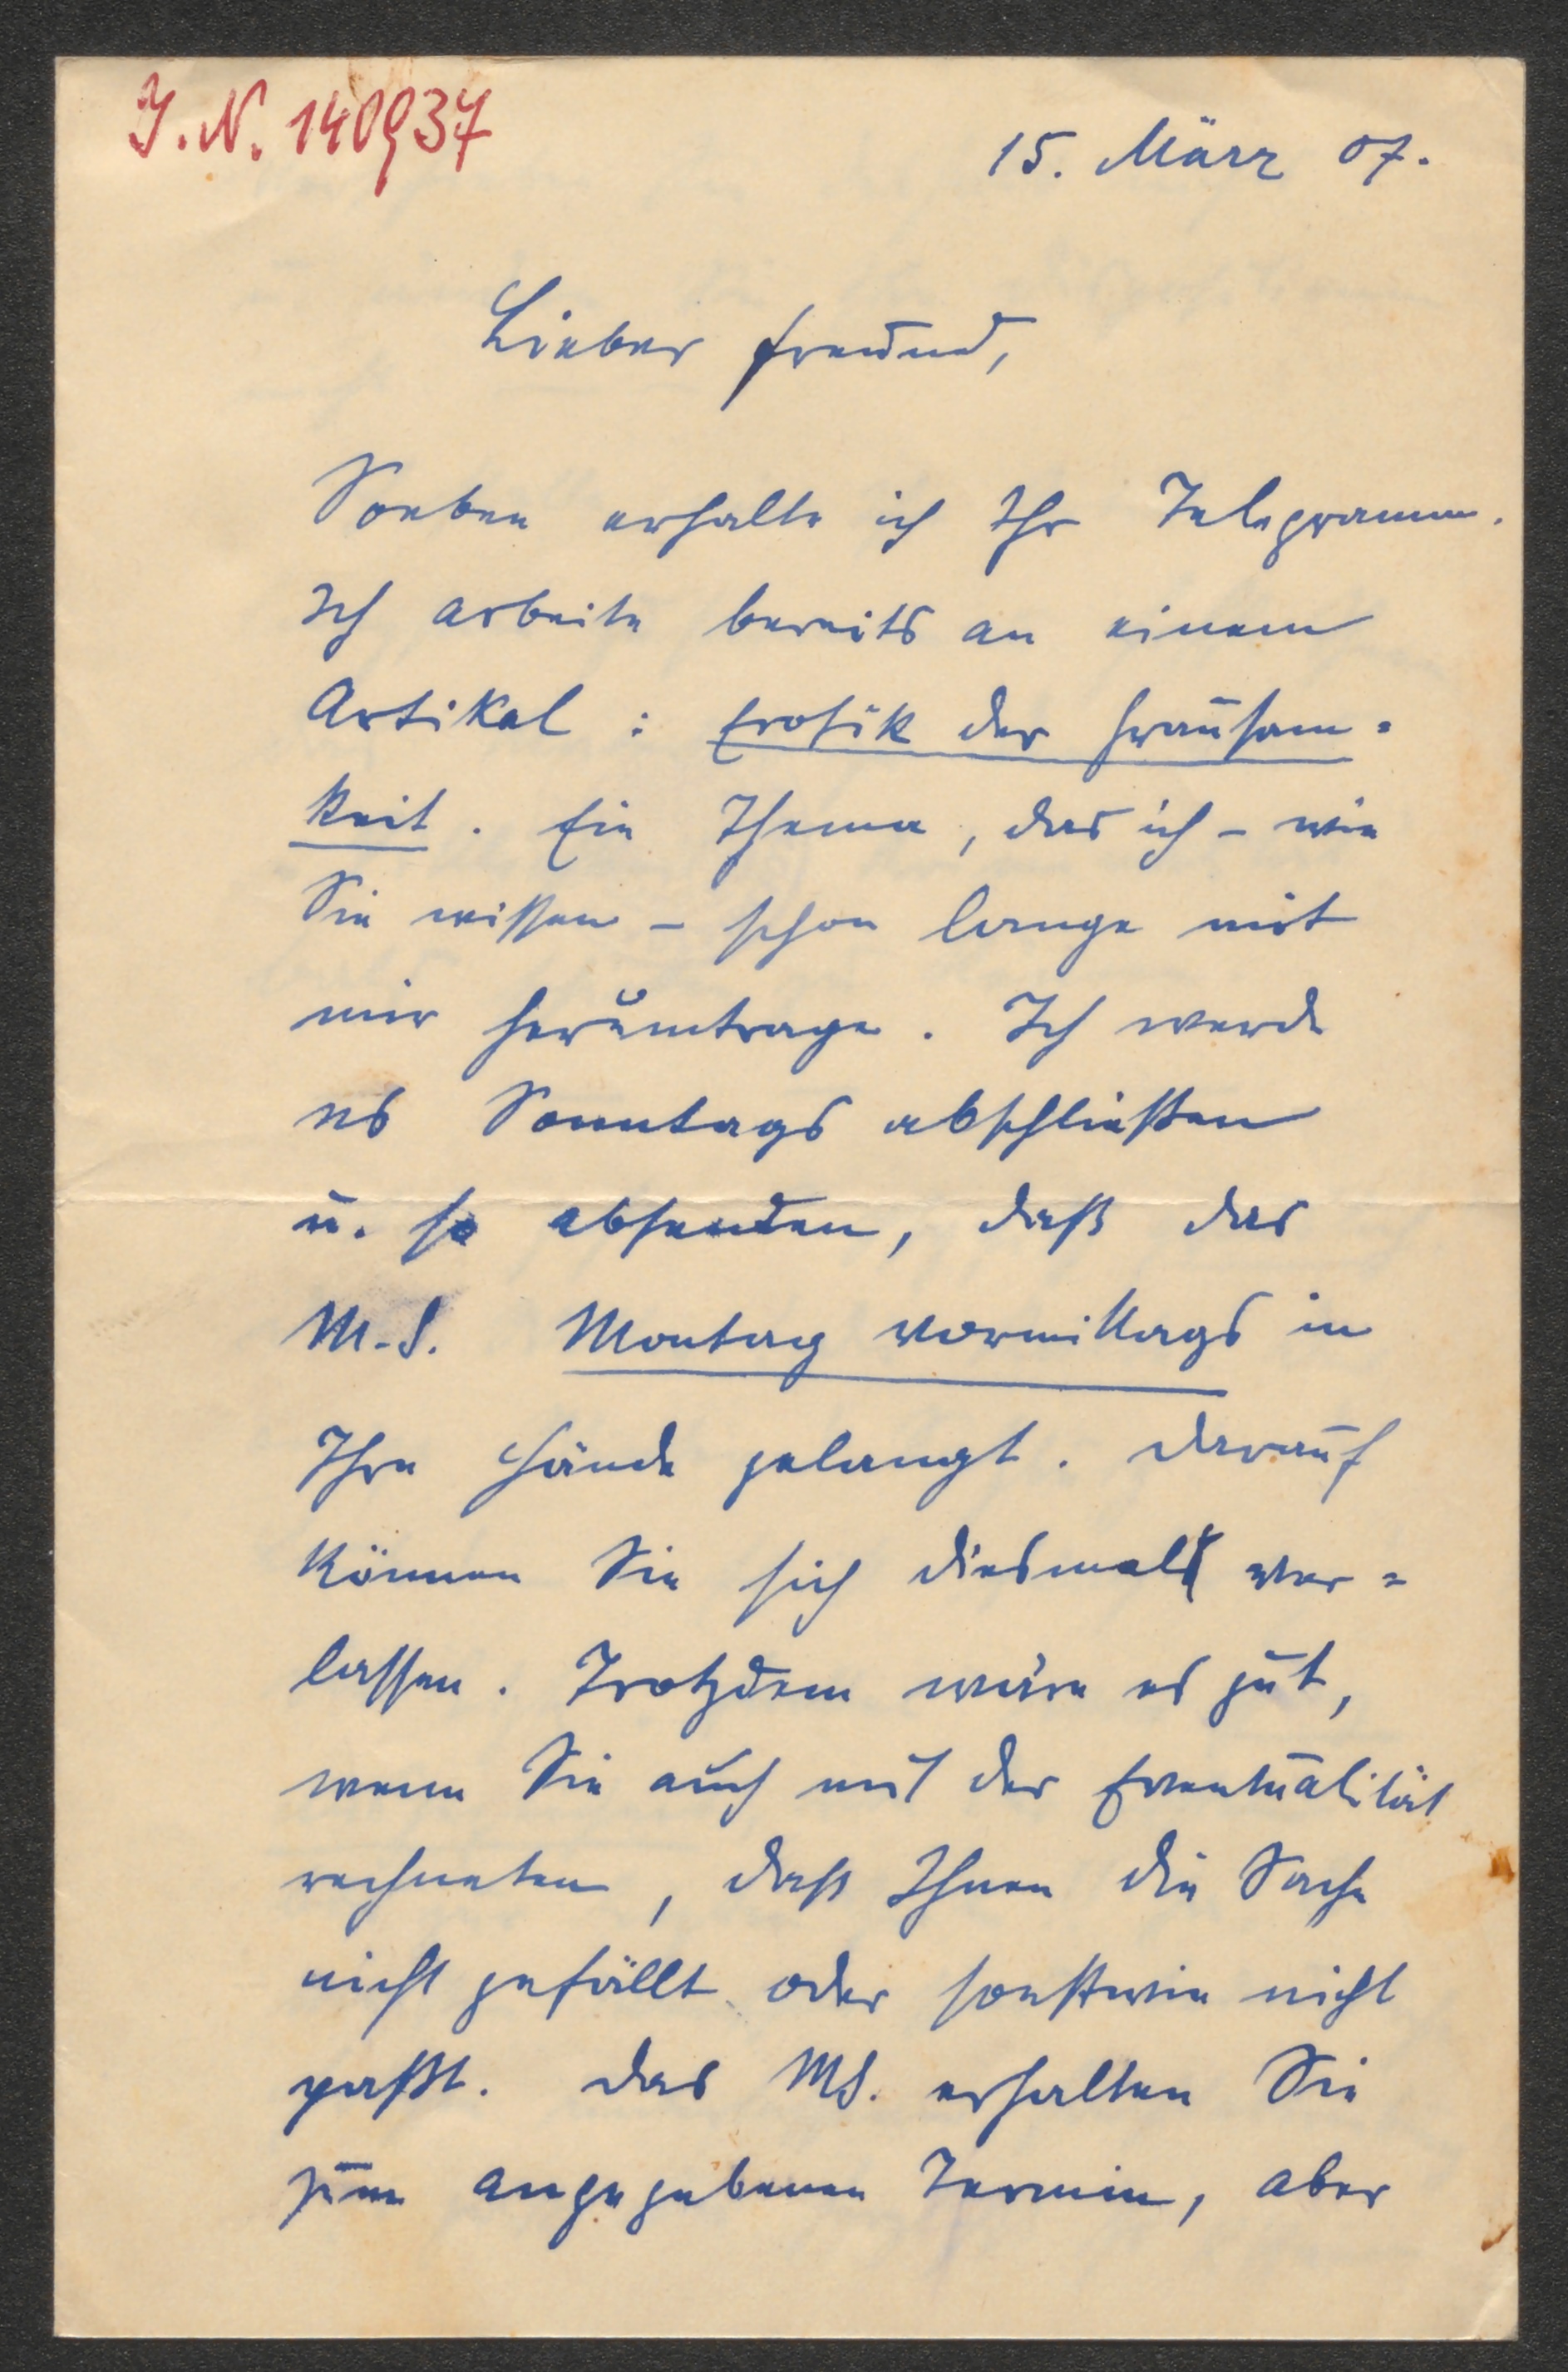 J. N. 140937
15. März 07.
Lieber Freund,
Soeben erhalte ich Ihr Telegramm.
Ich arbeite bereits an einem
Artikel : Erotik der Grausam=
keit. Ein Thema, das ich – wie
Sie wissen – schon lange mit
mir herumtrage. Ich werde
es Sonntags abschließen
u. so absenden, daß das
M.S. Montag vormittags in
Ihre Hände gelangt. Darauf
können Sie sich diesmal ver=
lassen. Trotzdem wäre es gut,
wenn Sie auch mit der Eventualität
rechneten, daß Ihnen die Sache
nicht gefällt oder sonstwie nicht
paßt. Das MS. erhalten Sie
zum angegebenen Termin, aber